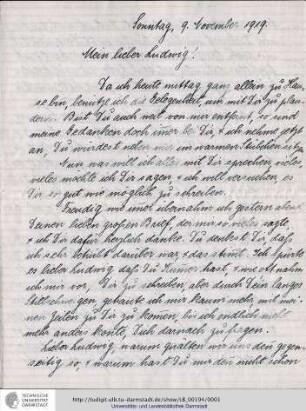 Sonntag, 9. November 1919.
Mein lieber Ludwig!
Da ich heute mittag ganz allein zu Hau-
se bin, benutze ich die Gelegenheit, um mit Dir zu plau-
dern. Bist Du auch weit von mir entfernt, so sind
meine Gedanken doch imer bei Dir, & ich nehme jetzt
an, Du würdest neben mir im warmen Stübchen sitzen.
Nun was will ich alles mit Dir sprechen, vieles,
vieles möchte ich Dir sagen, & ich will versuchen, es
Dir so gut wie möglich zu schreiben.
Freudig wie imer übernahm ich gestern abend
Deinen lieben großen Brief, der mir so vieles sagte,
& ich Dir dafür herzlich danke. Du denkst Dir, daß
ich sehr betrübt darüber war, & das stimt. Ich spürte
es lieber Ludwig daß Du Kumer hast, & wie oft nahm
ich mir vor, Dir zu schreiben, aber durch Dein langes
Stillschweigen, getraute ich mir kaum mehr mit mei-
nen Zeilen zu Dir zu komen, bis ich endlich nicht
mehr anders konnte, Dich darnach zu fragen.
Lieber Ludwig, warum quälten wir uns den gegen-
seitig so, & warum hast Du mir den nicht schon
TECHNISCHE
UNIVERSITÄT
DARMSTADT
http://tudigit.ulb.tu-darmstadt.de/show/LB_00194/0001
Universitäts- und Landesbibliothek Darmstadt